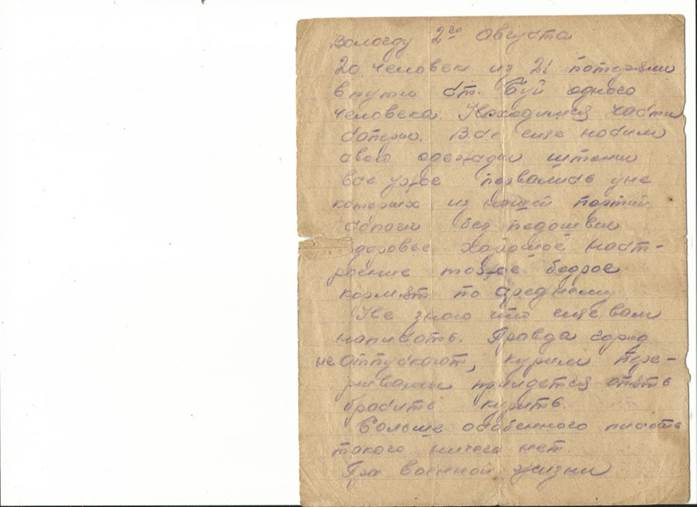 Вологду 2го Августа
20 человек из 21 потеряли
в пути ст. Буй одного
человека. Находимся части
сапёрн. Все еще носим
свою одежду штани
все уже порвались у не
которых из нашей партии
сапоги без подошвы
Здоровье хорошое наст-
роение тоже бодрое
кормят по среднему
Не знаю что еще вам
написать. Правда
не отпускают, курим
придется опять
бросить курить.
Больше особенного писать
такого ничего нет
военной жизни